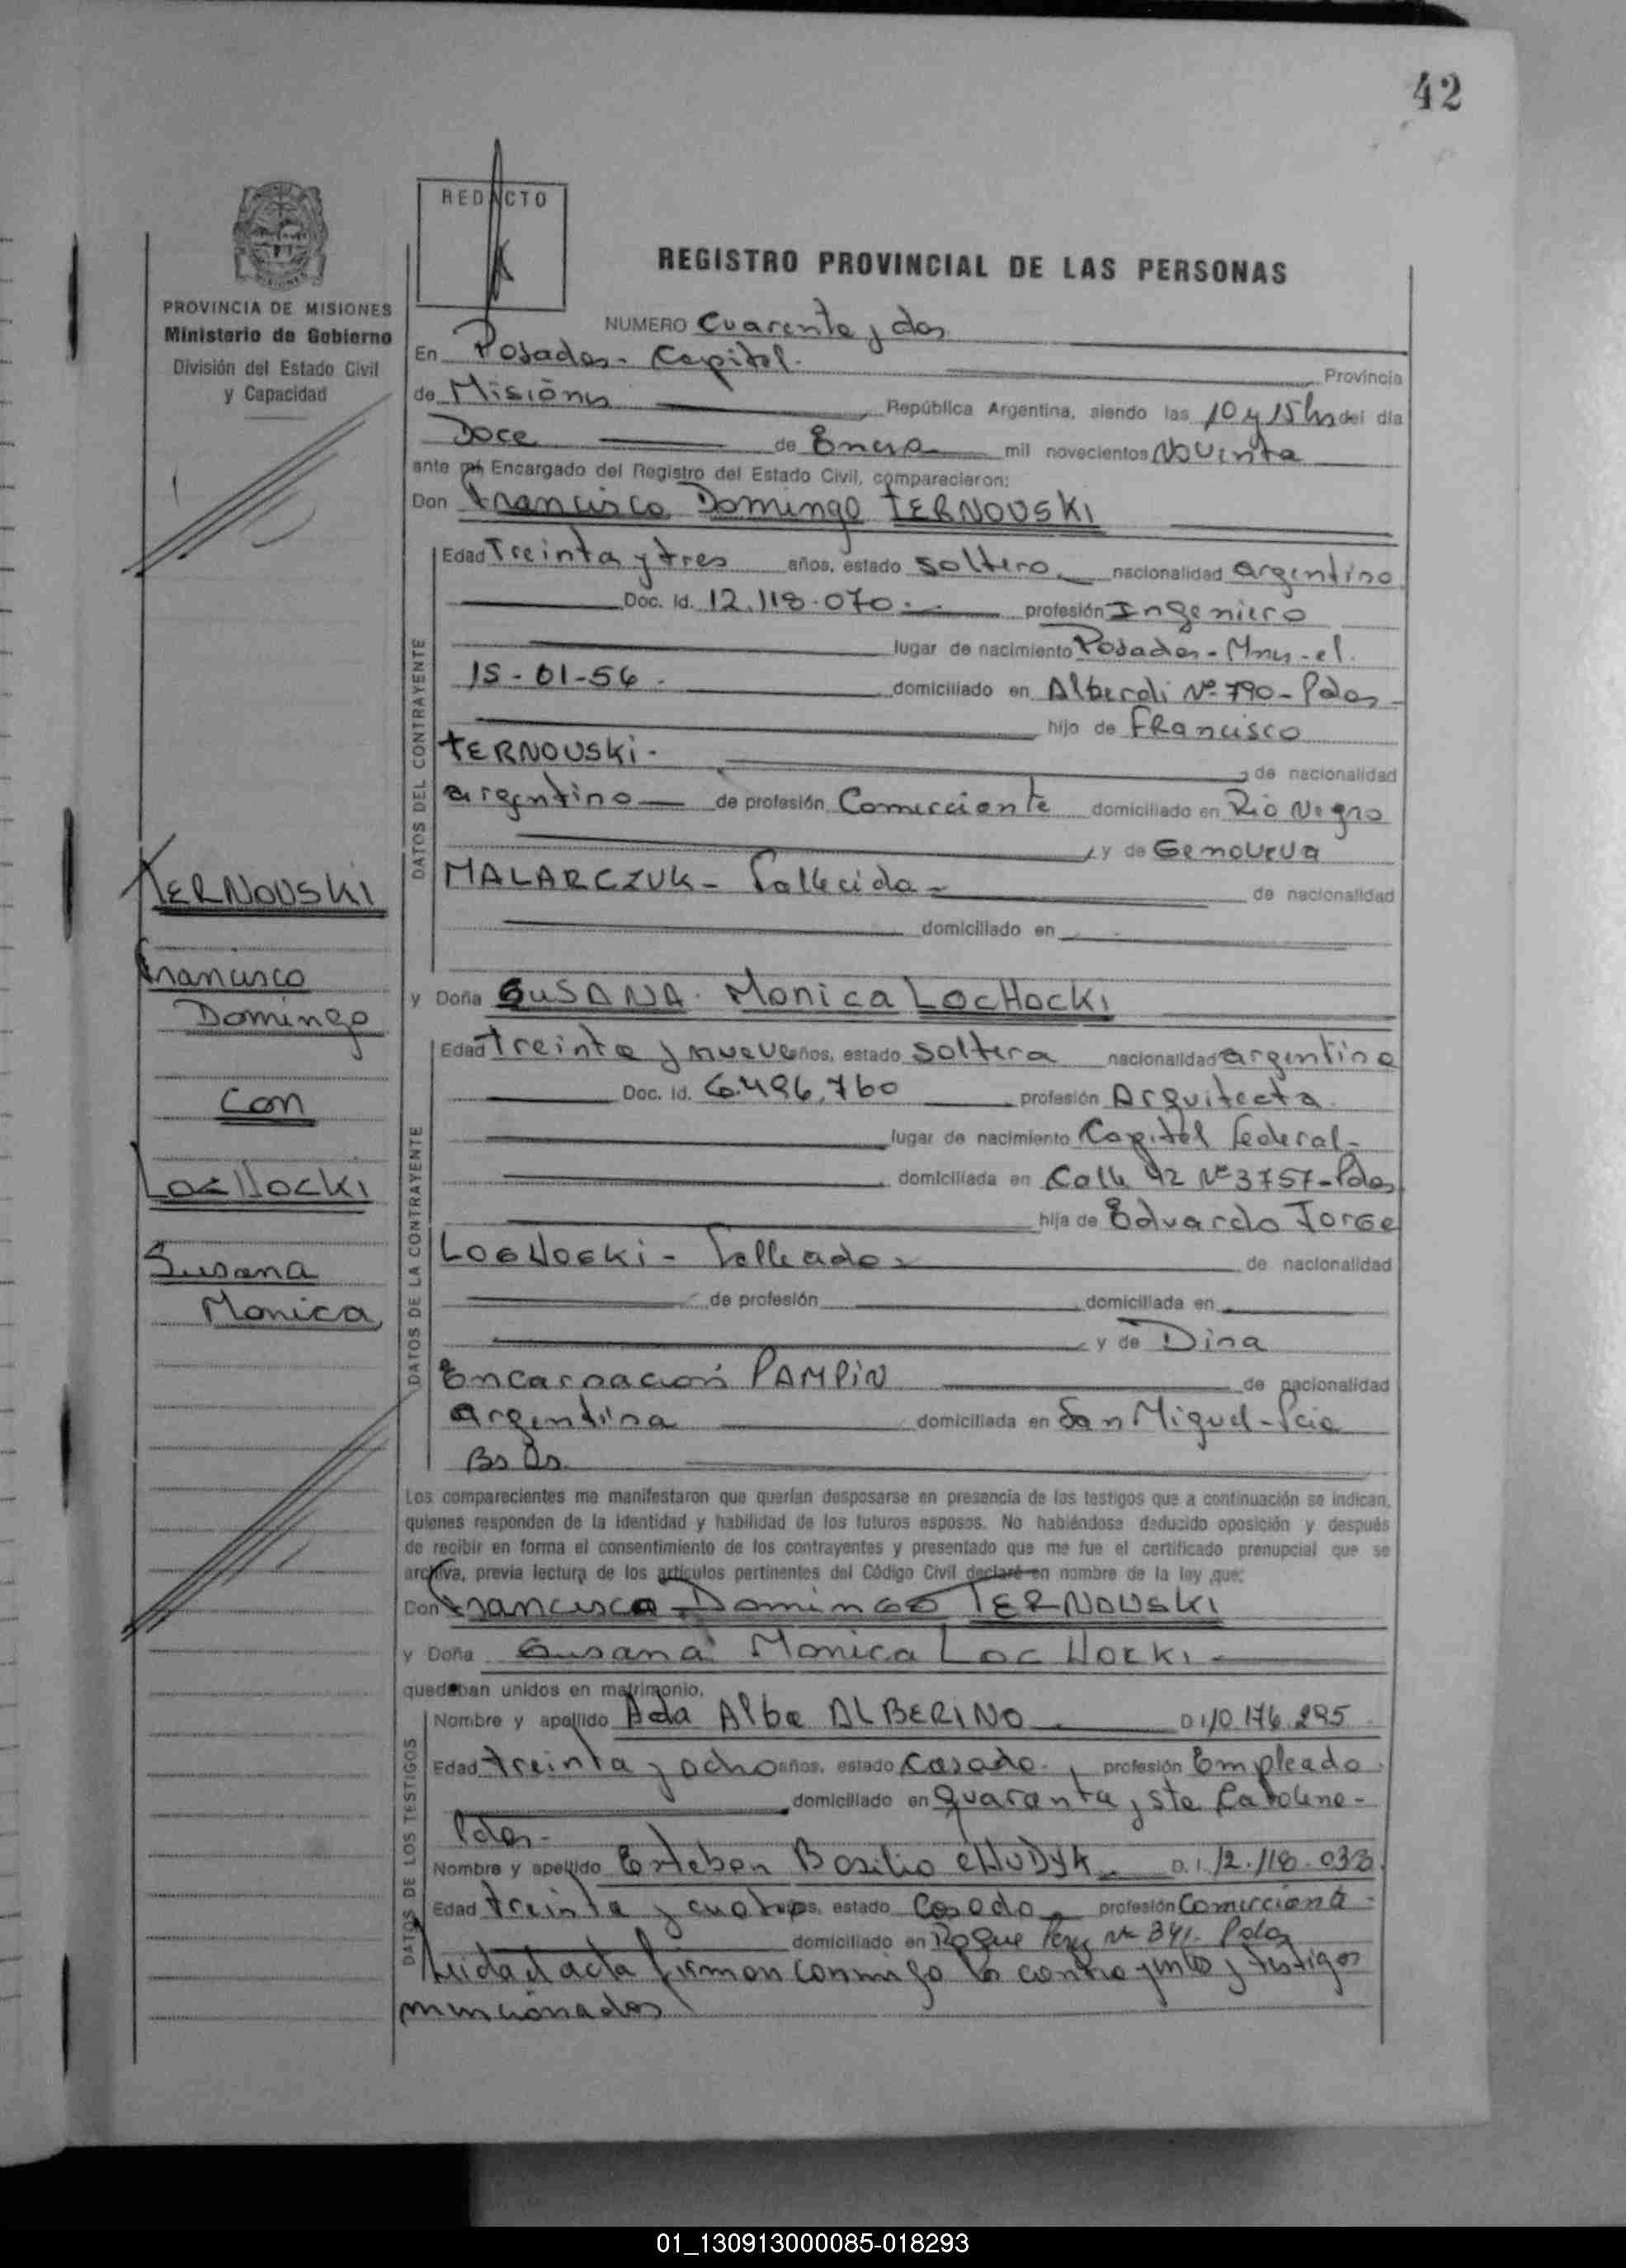 42
REDACTO
REGISTRO PROVINCIAL DE LAS PERSONAS
PROVINCIA DE MISIONES
Ministerio de Gobierno
División del Estado Civil
y Capacidad
NUMERO Cuarenta y dos
En Posadas - Capital. Provincia
de Misiones República Argentina, siendo las 10 y 15 hs del día
Doce de Enero mil novecientos Noventa
ante mí Encargado del Registro del Estado Civil, comparecieron:
Don Francisco Domingo TERNOUSKI
DATOS DEL CONTRAYENTE
Edad Treinta y tres años, estado soltero nacionalidad argentino
Doc. Id. 12.118.070.- profesión Ingeniero
lugar de nacimiento Posadas - Mnes - el.
15-01-56. domiciliado en Alberdi Nº 790 - Pdas
hijo de FRancisco
TERNOUSKi - de nacionalidad
argentino de profesión Comerciante domiciliado en Rio Negro
y de Genoveva
MALARCZUK - Fallecida - de nacionalidad
domiciliado en
y Doña SUSANA Monica LOCHOCKI
DATOS DE LA CONTRAYENTE
Edad Treinta y nueve años, estado soltera nacionalidad argentina
Doc. Id. 6.496.760 profesión Arquitecta
lugar de nacimiento Capital Federal -
domiciliada en Calle 42 Nº 3757 - Pdas
hija de Eduardo Jorge
LocHocki - Fallecido - de nacionalidad
de profesión domiciliada en
y de Dina
Encarnación PAMPiN de nacionalidad
argentina domiciliada en San Miguel - Pcia
Bs As.
Los comparecientes me manifestaron que querían desposarse en presencia de los testigos que a continuación se indican,
quienes responden de la identidad y habilidad de los futuros esposos. No habiéndose deducido oposición y después
de recibir en forma el consentimiento de los contrayentes y presentado que me fue el certificado prenupcial que se
archiva, previa lectura de los artículos pertinentes del Código Civil declaré en nombre de la ley que:
Don Francisco Domingo TERNOUSKI
y Doña Susana Monica LocHocki -
quedaban unidos en matrimonio.
DATOS DE LOS TESTIGOS
Nombre y apellido Ada Alba ALBERINO D.I. 10.176.295
Edad treinta y ocho años, estado casada profesión Empleada
domiciliado en Quaranta y Sta Catalina -
Pdas -
Nombre y apellido Esteban Basilio CHUDYK D.I. 12.118.033
Edad treinta y cuatro años, estado casado profesión Comerciante
domiciliado en Roque Perez Nº 341 - Pdas
Leida el acta firman conmigo los contrayentes y testigos
mencionados
TERNOUSKI
Francisco
Domingo
con
LocHocki
Susana
Monica
01_130913000085-018293